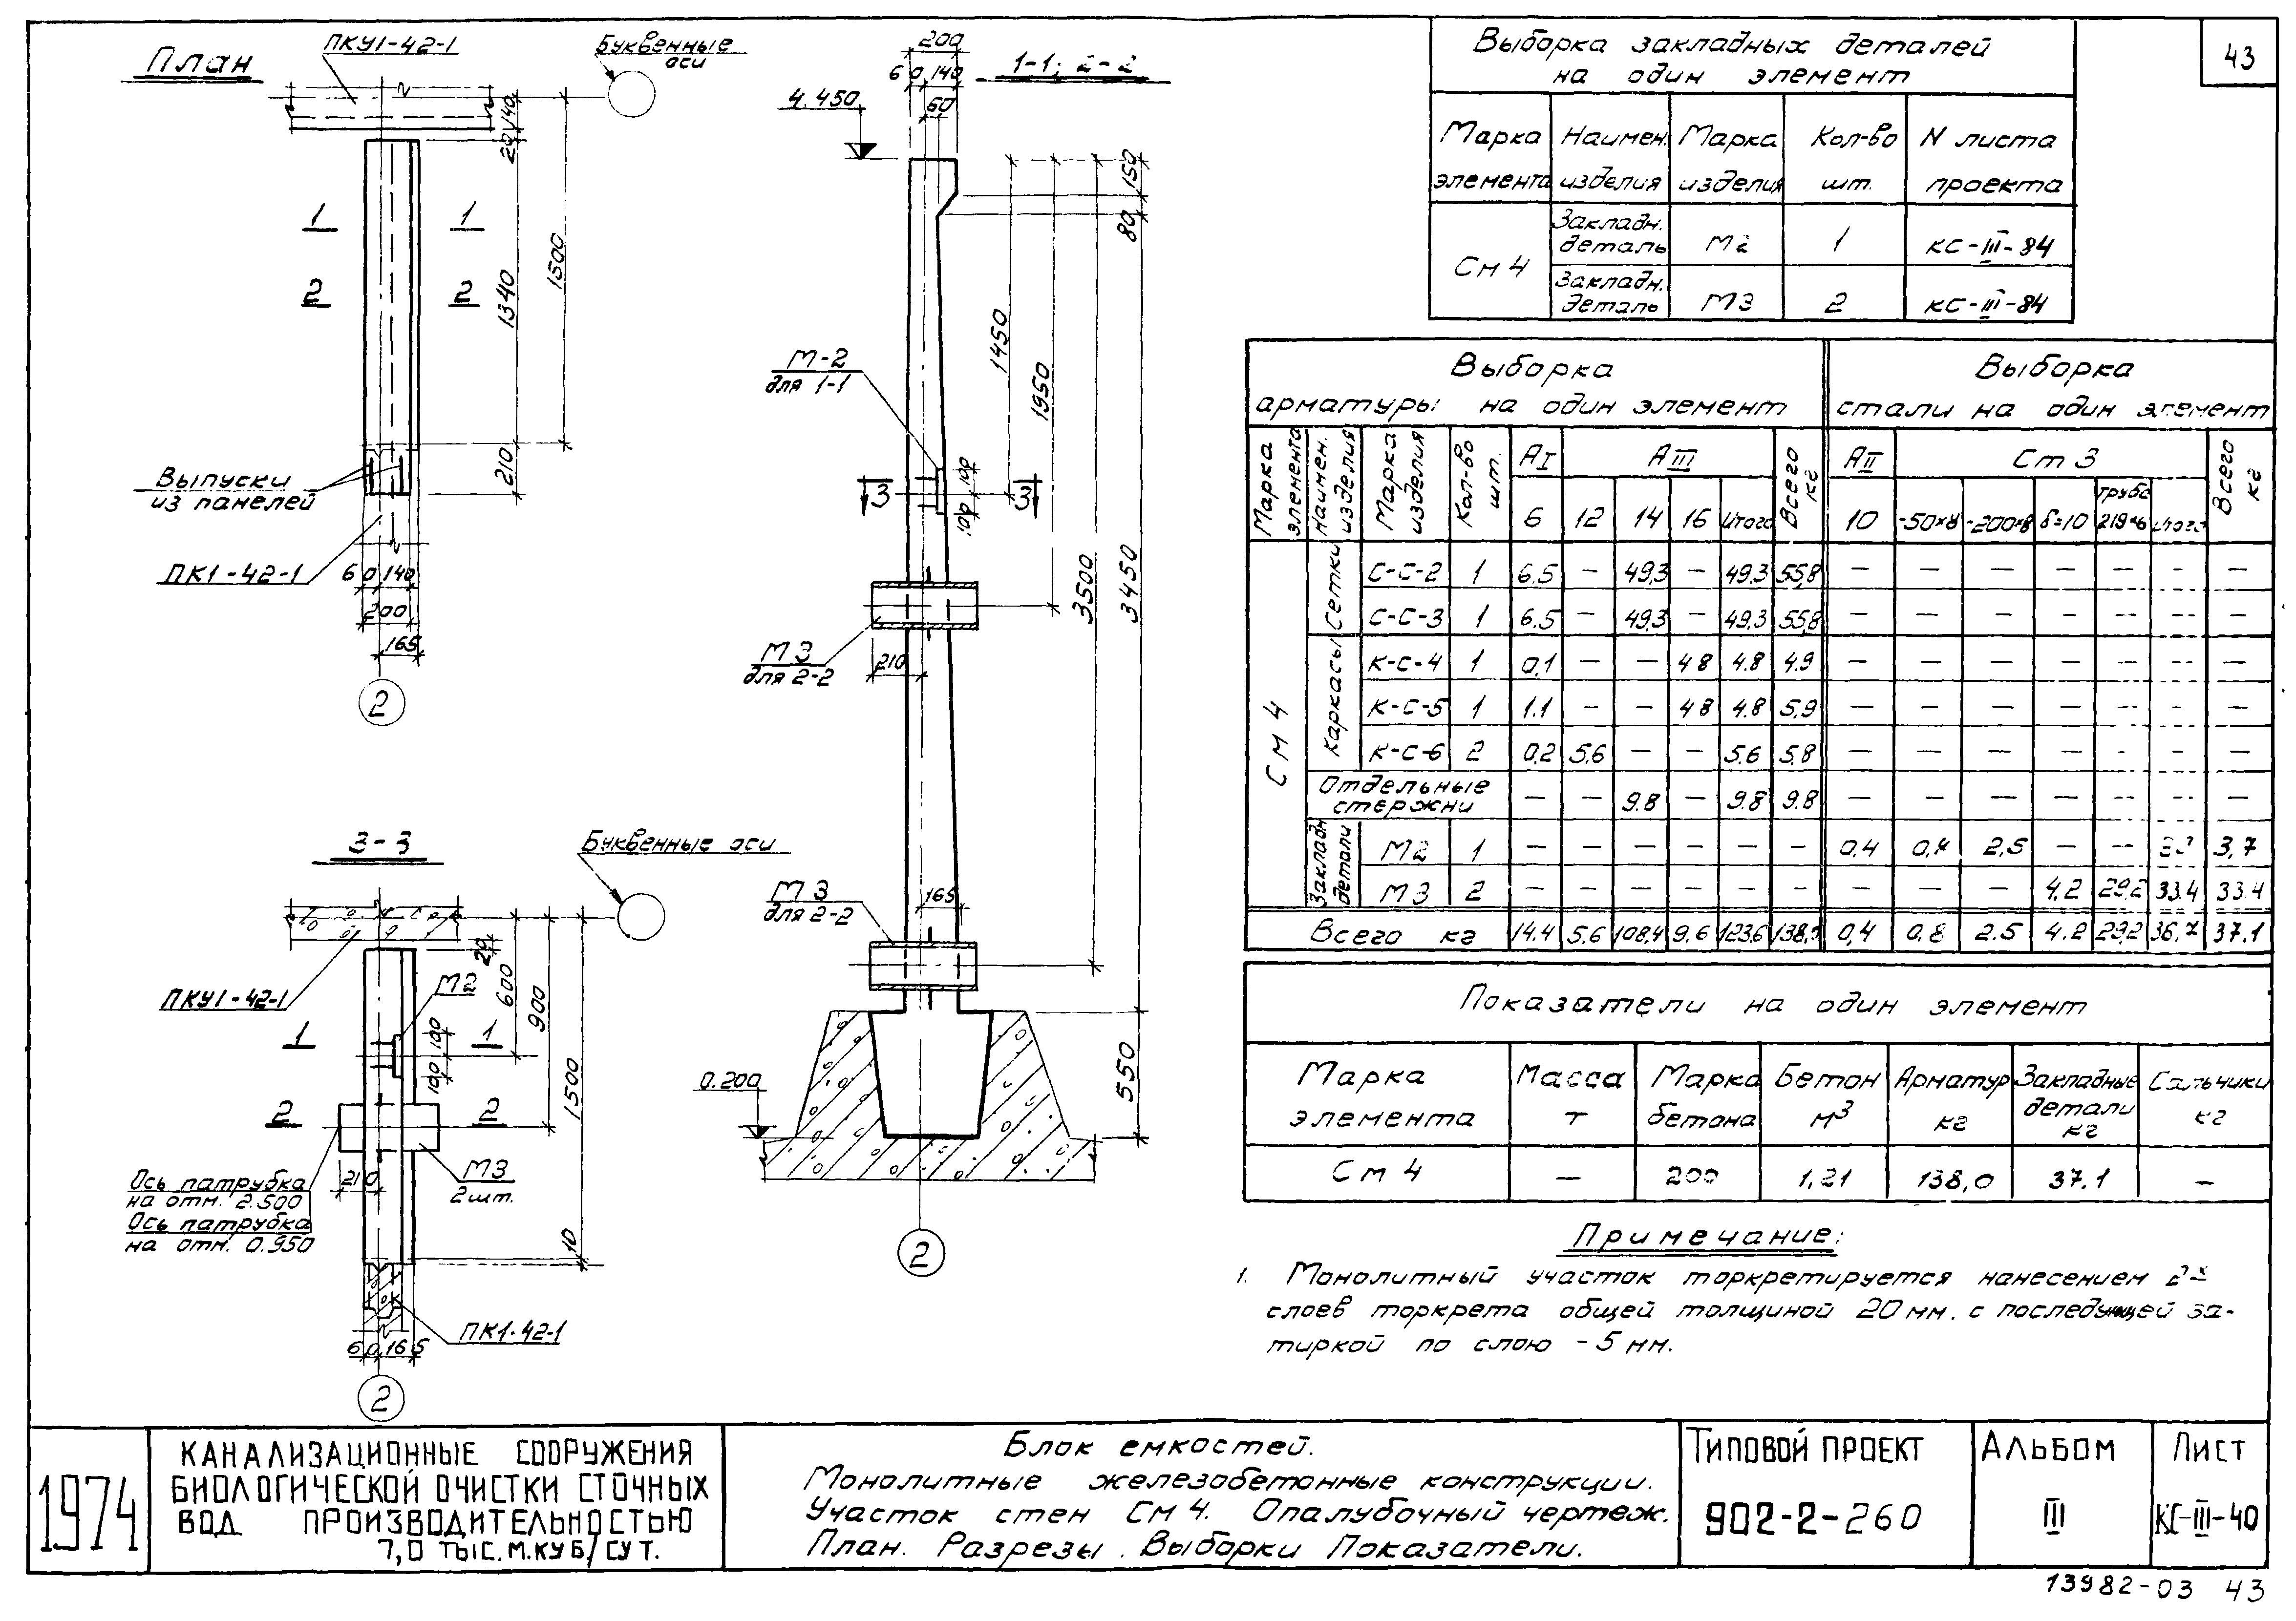 43
План
ПКУ1-42-1
Буквенные
оси
140
20
1500
1340
210
1 1
2 2
Выпуски
из панелей
ПК1-42-1
60 140
200
165
2
1-1; 2-2
200
60 140
60
4.450
150
80
1450
1950
3500
3450
М-2
для 1-1
100
100
3 3
М3
для 2-2
210
М3
для 2-2
165
0.200
550
2
3-3
Буквенные оси
ПКУ1-42-1
20
600
900
1500
М2
100
100
1 1
2 2
210
М3
2 шт.
Ось патрубка
на отм. 2.500
Ось патрубка
на отм. 0.950
10
ПК1-42-1
60 165
2
Выборка закладных деталей
на один элемент
Марка элемента | Наимен. изделия | Марка изделия | Кол-во шт. | N листа проекта
См 4 | Закладн. деталь | М2 | 1 | КС-III-84
Закладн. деталь | М3 | 2 | КС-III-84
Выборка арматуры на один элемент | Выборка стали на один элемент
Марка элемента | Наимен. изделия | Марка изделия | Кол-во шт. | АI | АIII | Всего кг | АII | Ст 3 | Всего кг
6 | 12 | 14 | 16 | Итого | 10 | -50×8 | -200×8 | δ=10 | труба 219×6 | Итого
См 4
Сетки
С-С-2 | 1 | 6.5 | — | 49,3 | — | 49,3 | 55,8 | — | — | — | — | — | — | —
С-С-3 | 1 | 6.5 | — | 49,3 | — | 49,3 | 55,8 | — | — | — | — | — | — | —
Каркасы
К-С-4 | 1 | 0,1 | — | — | 4 8 | 4.8 | 4.9 | — | — | — | — | — | — | —
К-С-5 | 1 | 1.1 | — | — | 4 8 | 4.8 | 5,9 | — | — | — | — | — | — | —
К-С-6 | 2 | 0,2 | 5,6 | — | — | 5.6 | 5,8 | — | — | — | — | — | — | —
Отдельные стержни | — | — | 9.8 | — | 9.8 | 9.8 | — | — | — | — | — | — | —
Закладн. детали
М2 | 1 | — | — | — | — | — | — | 0,4 | 2,5 | — | — | 3,7
М3 | 2 | — | — | — | — | — | — | — | — | — | 4.2 | 29,2 | 33.4 | 33.4
Всего кг | 14.4 | 5.6 | 108,4 | 9.6 | 123,6 | 0,4 | 0,8 | 2.5 | 4.2 | 29,2 | 36,7 | 37.1
Показатели на один элемент
Марка элемента | Масса т | Марка бетона | Бетон м3 | Арматур кг | Закладные детали кг | Сальники кг
См 4 | — | 200 | 1,21 | 138,0 | 37.1 | —
Примечание:
1. Монолитный участок торкретируется нанесением 2х
слоев торкрета общей толщиной 20мм. с последующей за-
тиркой по слою - 5 мм.
1974
Канализационные сооружения
биологической очистки сточных
вод производительностью
7,0 тыс.м.куб/сут.
Блок емкостей.
Монолитные железобетонные конструкции.
Участок стен См 4. Опалубочный чертеж.
План. Разрезы. Выборки Показатели.
Типовой проект
902-2-260
Альбом
III
Лист
КС-III-40
13982-03 43